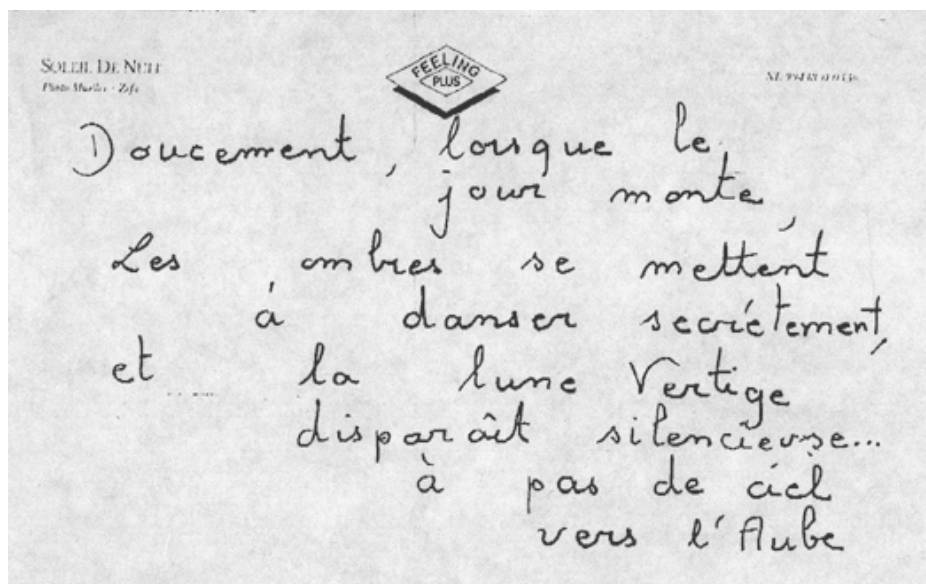 SOLEIL DE NUIT
Photo Muriles - Zefa
FEELING
PLUS
Doucement, lorsque le
jour monte,
Les ombres se mettent
à danser secrétement,
et la lune Vertige
disparaît silencieuse...
à pas de ciel
vers l'Aube